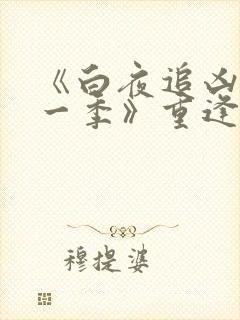 《白夜追凶
一季》重逢
穆提婆